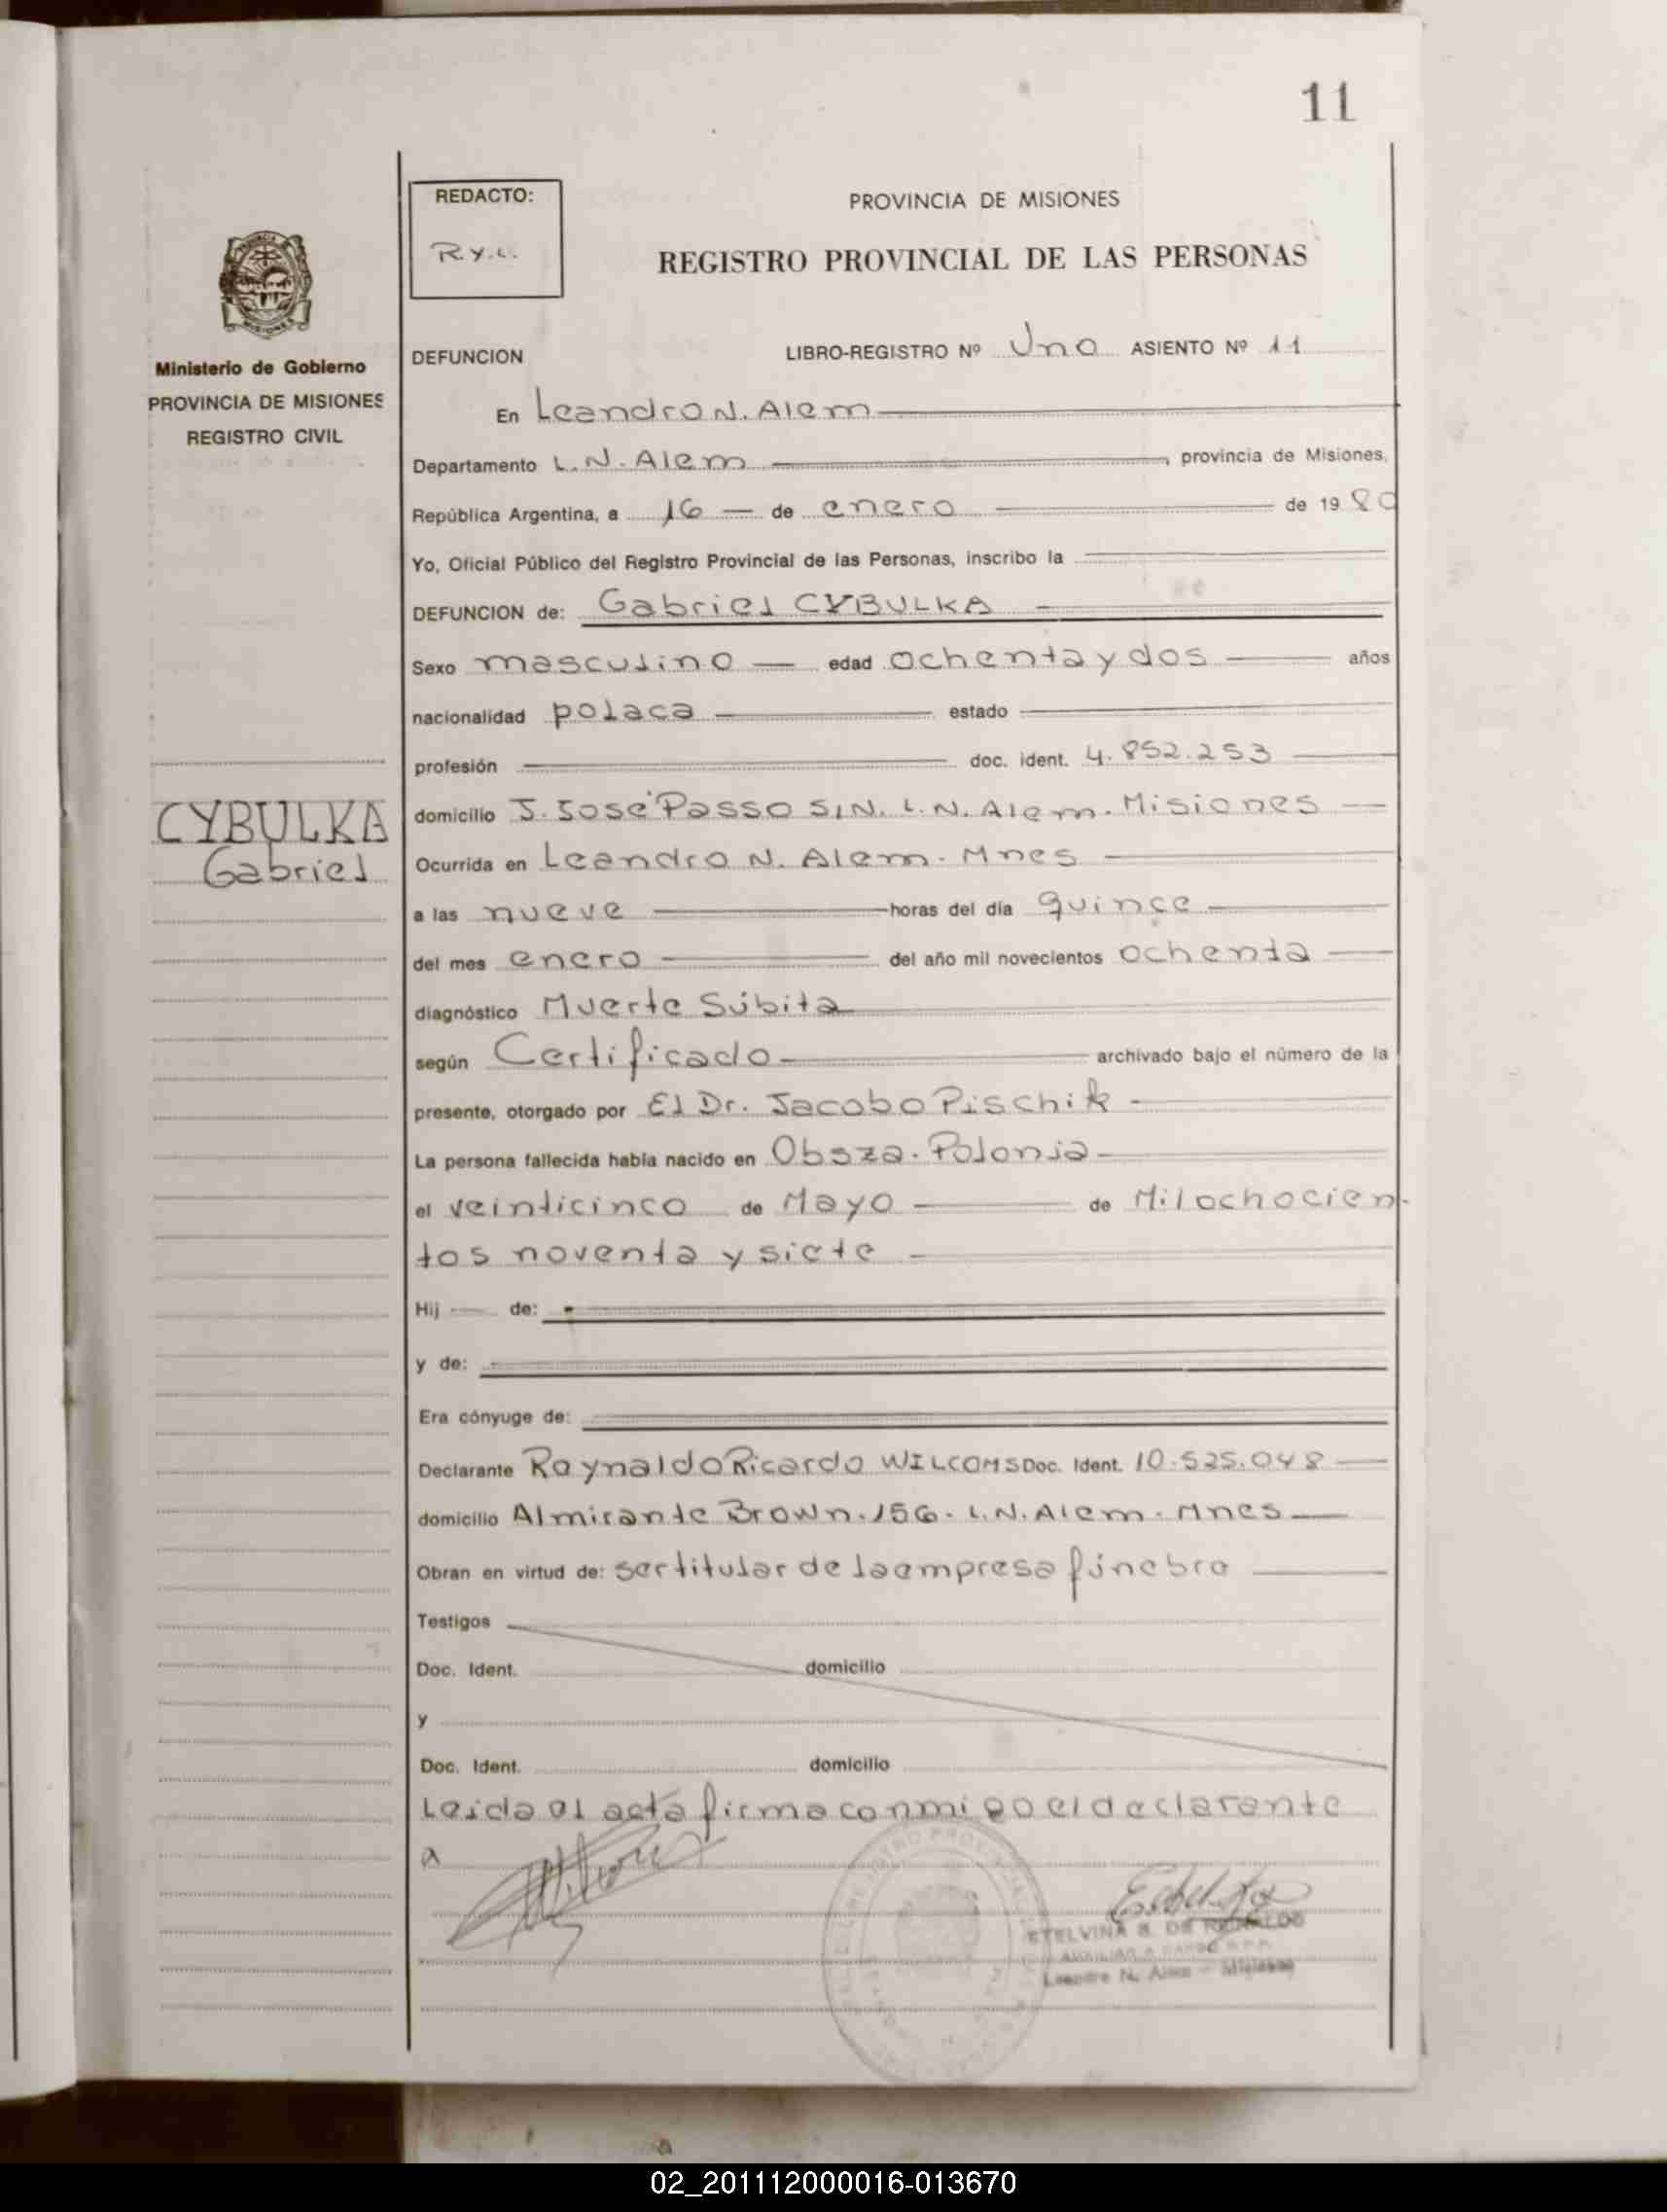 11
REDACTO:
R.y.c.
PROVINCIA DE MISIONES
REGISTRO PROVINCIAL DE LAS PERSONAS
Ministerio de Gobierno
PROVINCIA DE MISIONES
REGISTRO CIVIL
DEFUNCION LIBRO-REGISTRO Nº Uno ASIENTO Nº 11
En Leandro N. Alem
Departamento L.N. Alem, provincia de Misiones,
República Argentina, a 16 de enero de 1980
Yo, Oficial Público del Registro Provincial de las Personas, inscribo la
DEFUNCION de: Gabriel CYBULKA
Sexo masculino edad ochenta y dos años
nacionalidad polaca estado
profesión doc. ident. 4.852.253
CYBULKA
Gabriel
domicilio J. José Passo S/N. L.N. Alem. Misiones
Ocurrida en Leandro N. Alem. Mnes
a las nueve horas del día quince
del mes enero del año mil novecientos ochenta
diagnóstico Muerte Súbita
según Certificado archivado bajo el número de la
presente, otorgado por El Dr. Jacobo Pischik
La persona fallecida había nacido en Obsza. Polonia
el veinticinco de Mayo de Milochocien-
tos noventa y siete
Hij de:
y de:
Era cónyuge de:
Declarante Raynaldo Ricardo WILCOMS Doc. Ident. 10.525.048
domicilio Almirante Brown. 156. L.N. Alem. Mnes
Obran en virtud de: ser titular de la empresa fúnebre
Testigos
Doc. Ident. domicilio
y
Doc. Ident. domicilio
Leida el acta firma conmigo el declarante
a
ETELVINA DE
Leandro N. Alem - Misiones
02_201112000016-013670